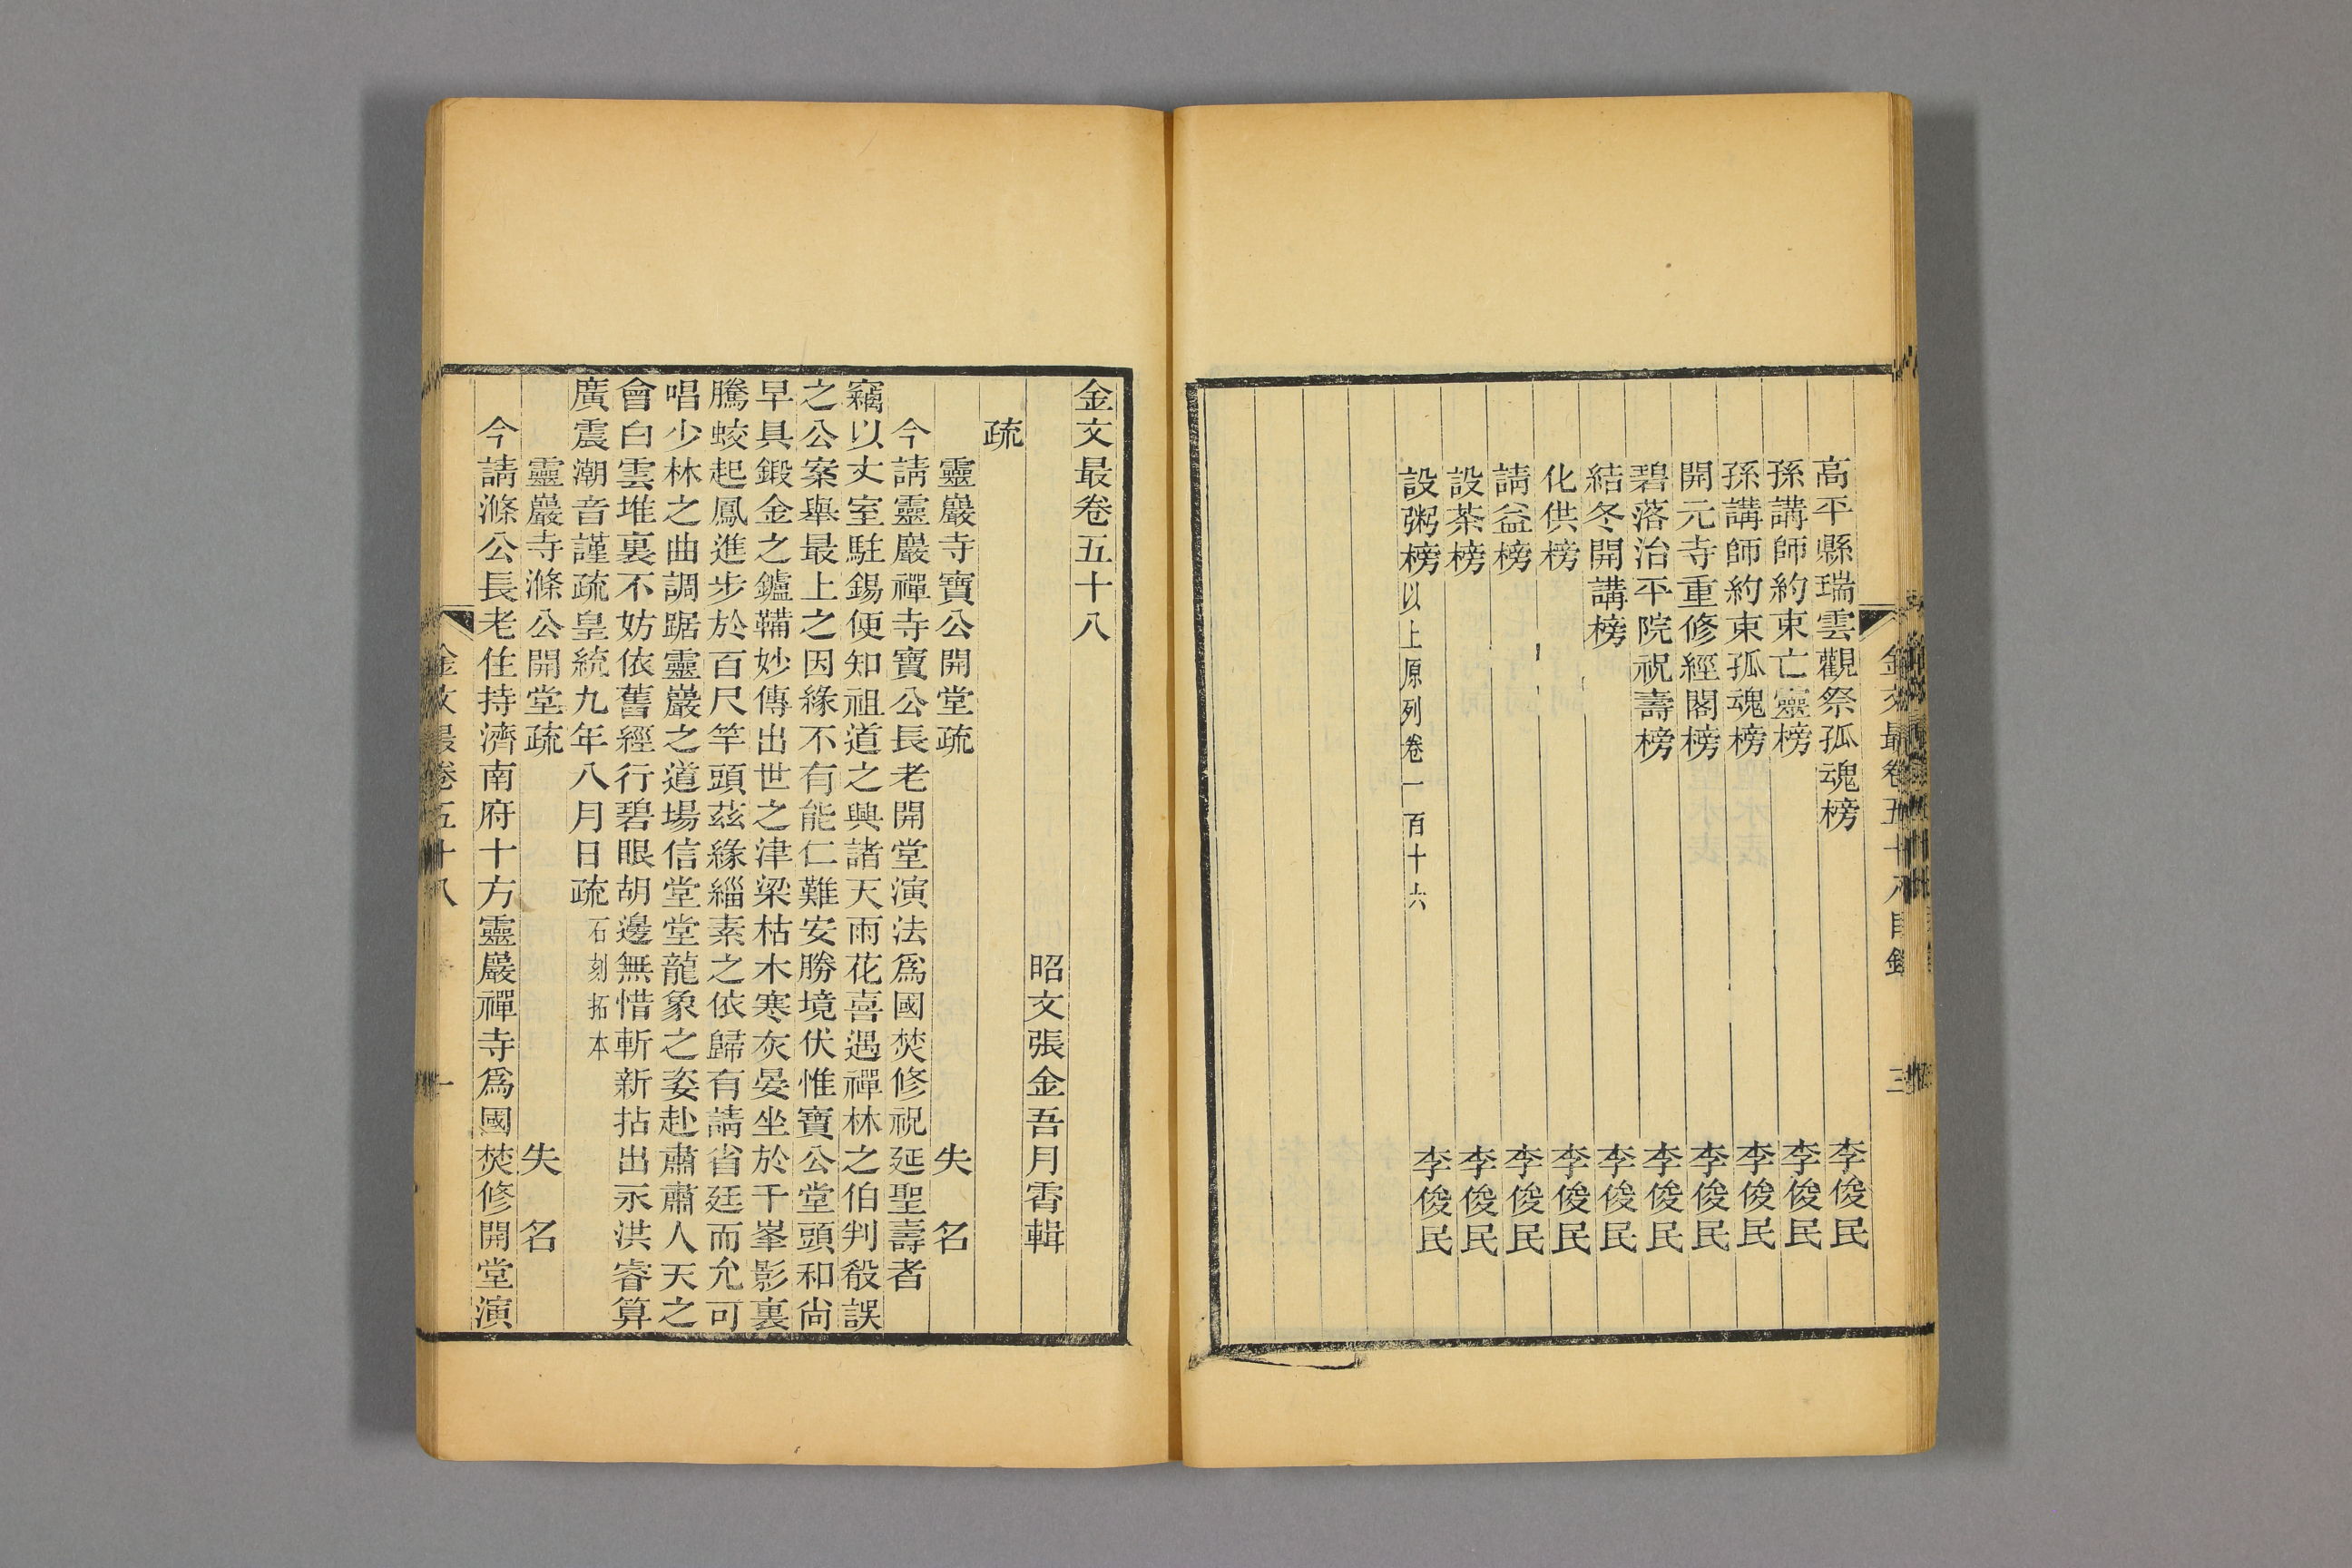 高平縣瑞雲觀祭孤魂榜 李俊民
孫講師約束亡靈榜 李俊民
孫講師約束孤魂榜 李俊民
開元寺重修經閣榜 李俊民
碧落治平院祝壽榜 李俊民
結冬開講榜 李俊民
化供榜 李俊民
請益榜 李俊民
設茶榜 李俊民
設粥榜以上原列卷一百十六 李俊民
金文最卷五十八
昭文張金吾月霄輯
疏
靈巖寺寶公開堂疏 失名
今請靈巖禪寺寶公長老開堂演法爲國焚修祝延聖壽者
竊以丈室駐錫便知祖道之興諸天雨花喜遇禪林之伯判殽誤
之公案舉最上之因緣不有能仁難安勝境伏惟寶公堂頭和尙
早具鍛金之鑪鞴妙傳出世之津梁枯木寒灰晏坐於千峯影裏
騰蛟起鳳進步於百尺竿頭茲緣緇素之依歸有請省廷而允可
唱少林之曲調踞靈巖之道場信堂堂龍象之姿赴肅肅人天之
會白雲堆裏不妨依舊經行碧眼胡邊無惜斬新拈出永洪睿算
廣震潮音謹疏皇統九年八月日疏石刻拓本
靈巖寺滌公開堂疏 失名
今請滌公長老住持濟南府十方靈巖禪寺爲國焚修開堂演
金文最卷五十八 一